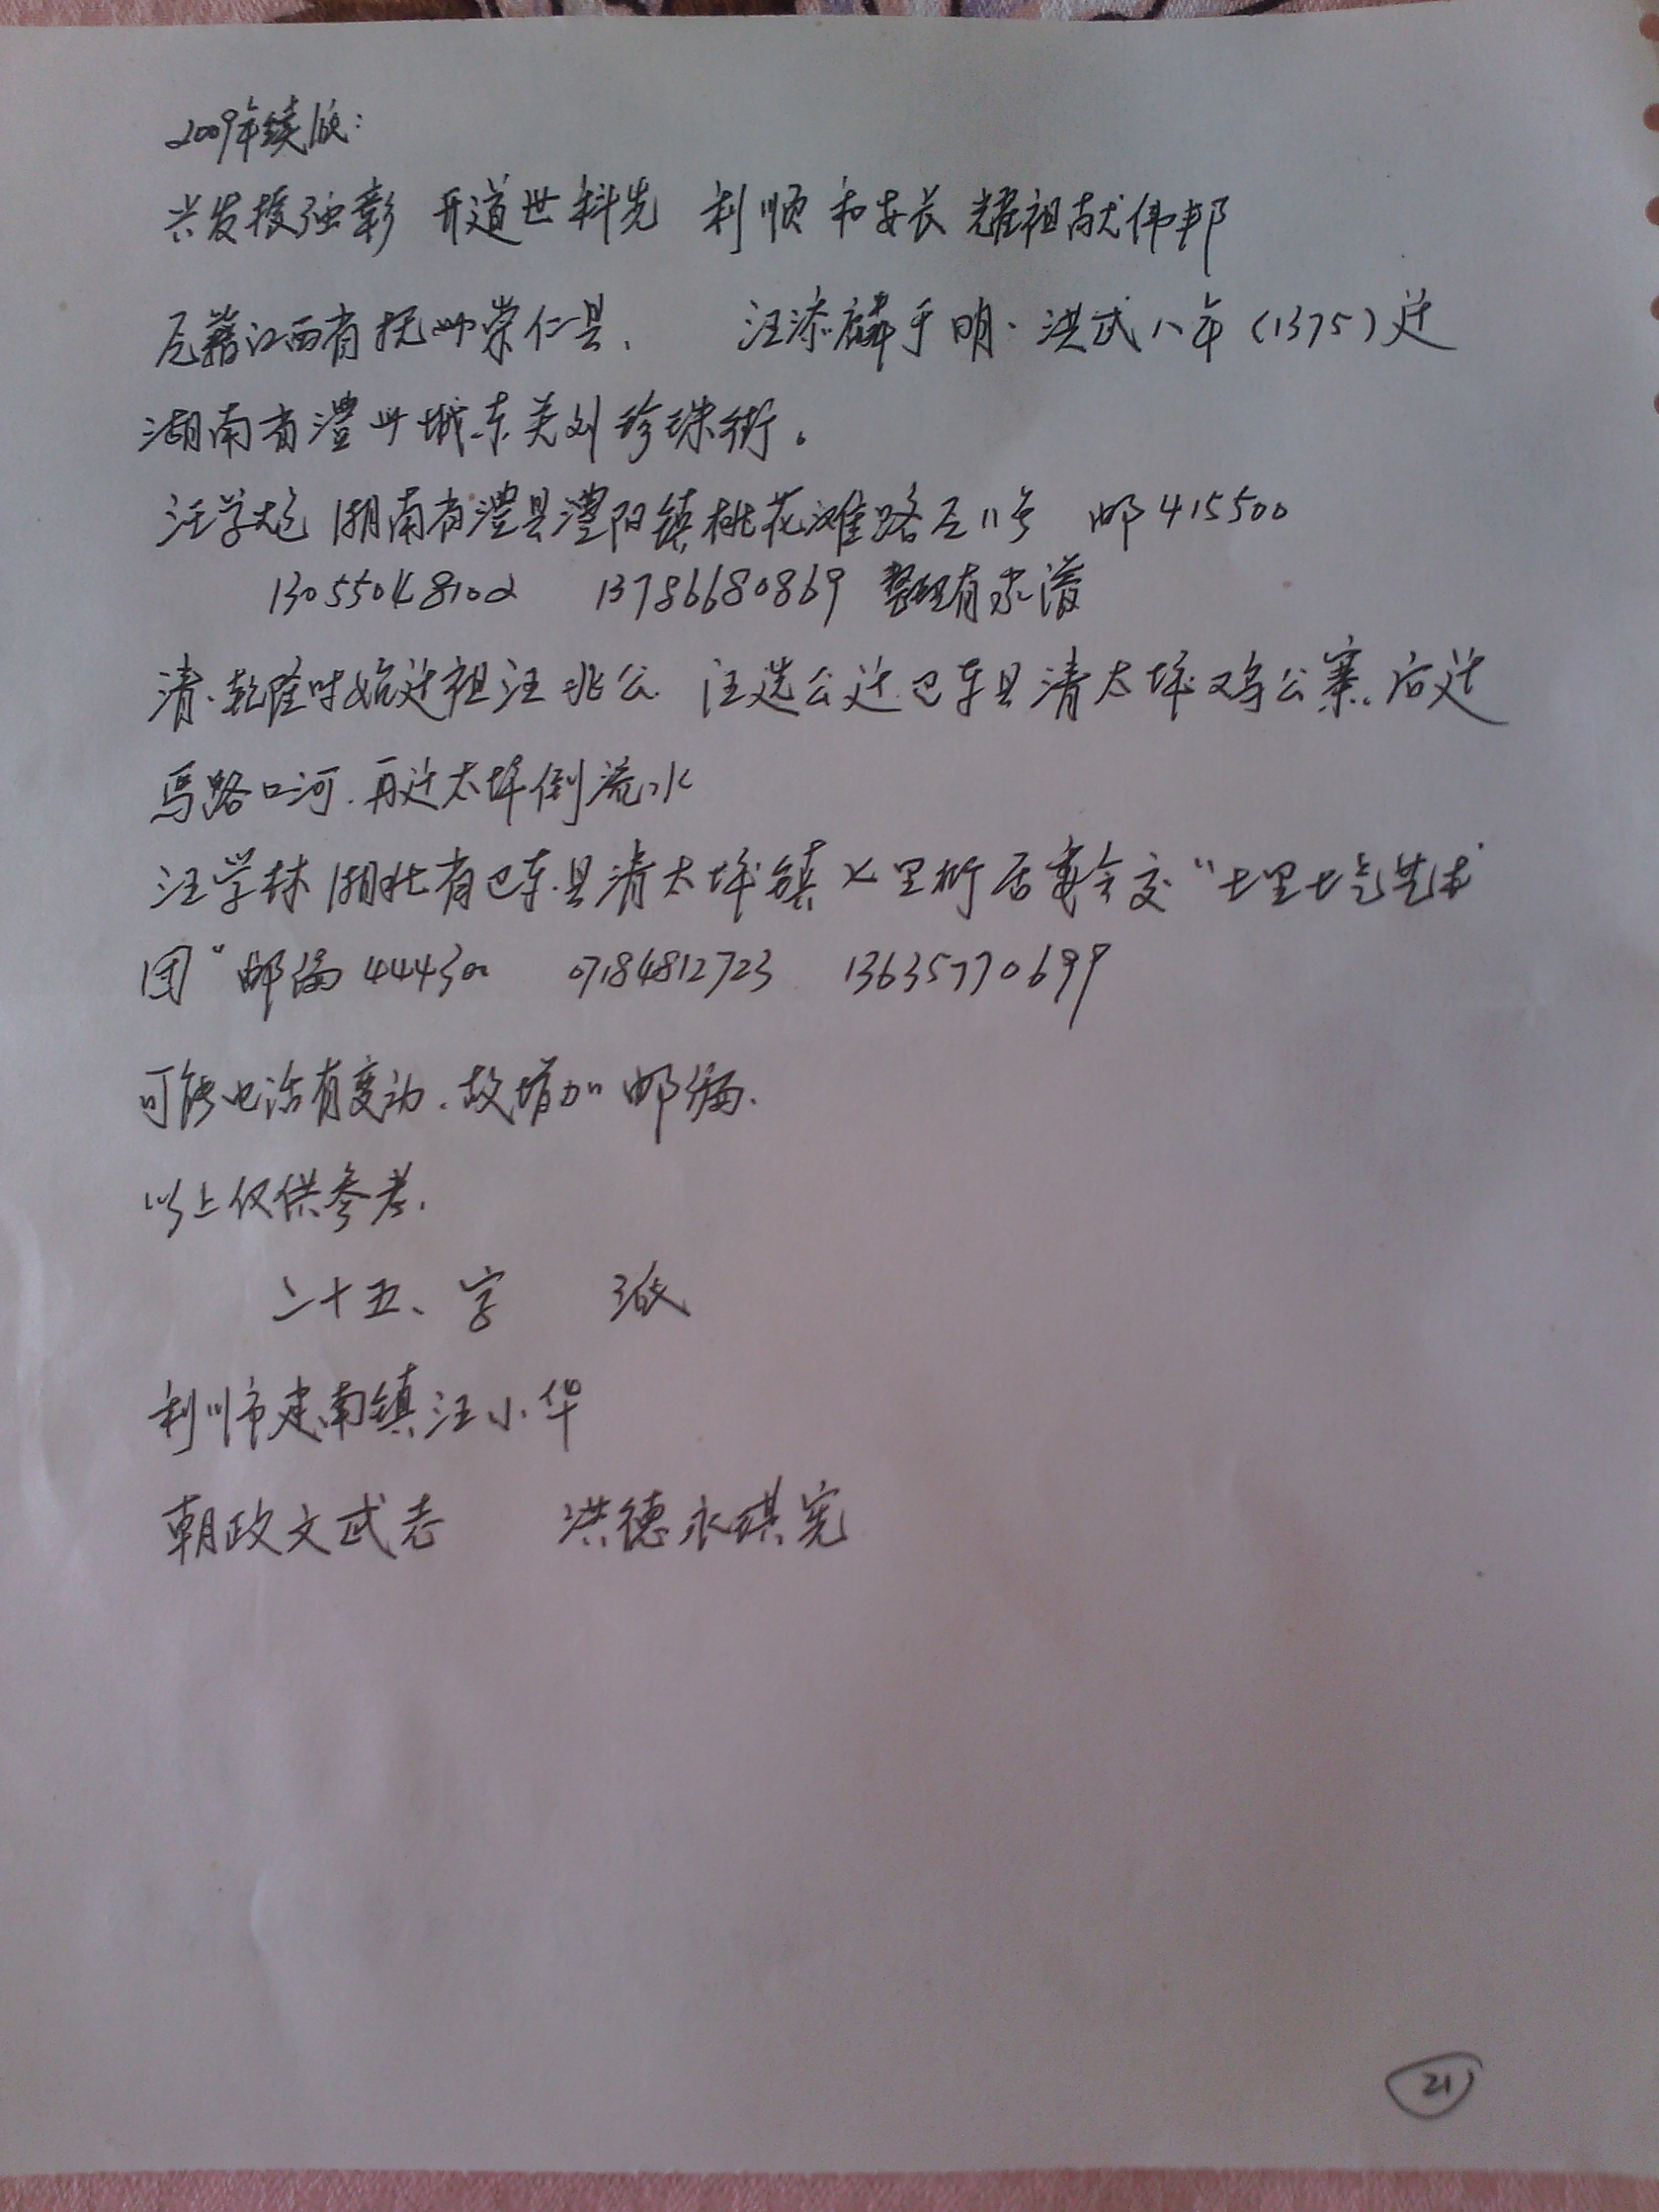 2009年续派:
兴发振强彰 开道世科先 利顺和安长 耀祖献伟邦
原籍江西省抚州崇仁县. 汪添麟于明·洪武八年(1375)迁
湖南省澧州城东关刘珍珠街。
汪学 湖南省澧县澧阳镇桃花滩路 11号 邮415500
13055048102 13786680869 整理有家谱
清·乾隆时始迁祖汪兆公 汪选公迁巴东县清太坪鸡公寨.后迁
马路口河.再迁太坪倒流水
汪学林 湖北省巴东县清太坪镇 里 居委会交"土里土气艺术
团" 邮编444300 07184812723 13635770699
可能电话有变动.故增加邮编.
以上仅供参考.
二十五、字 派
利川市建南镇汪小华
朝政文武志 洪德永琪宪
21